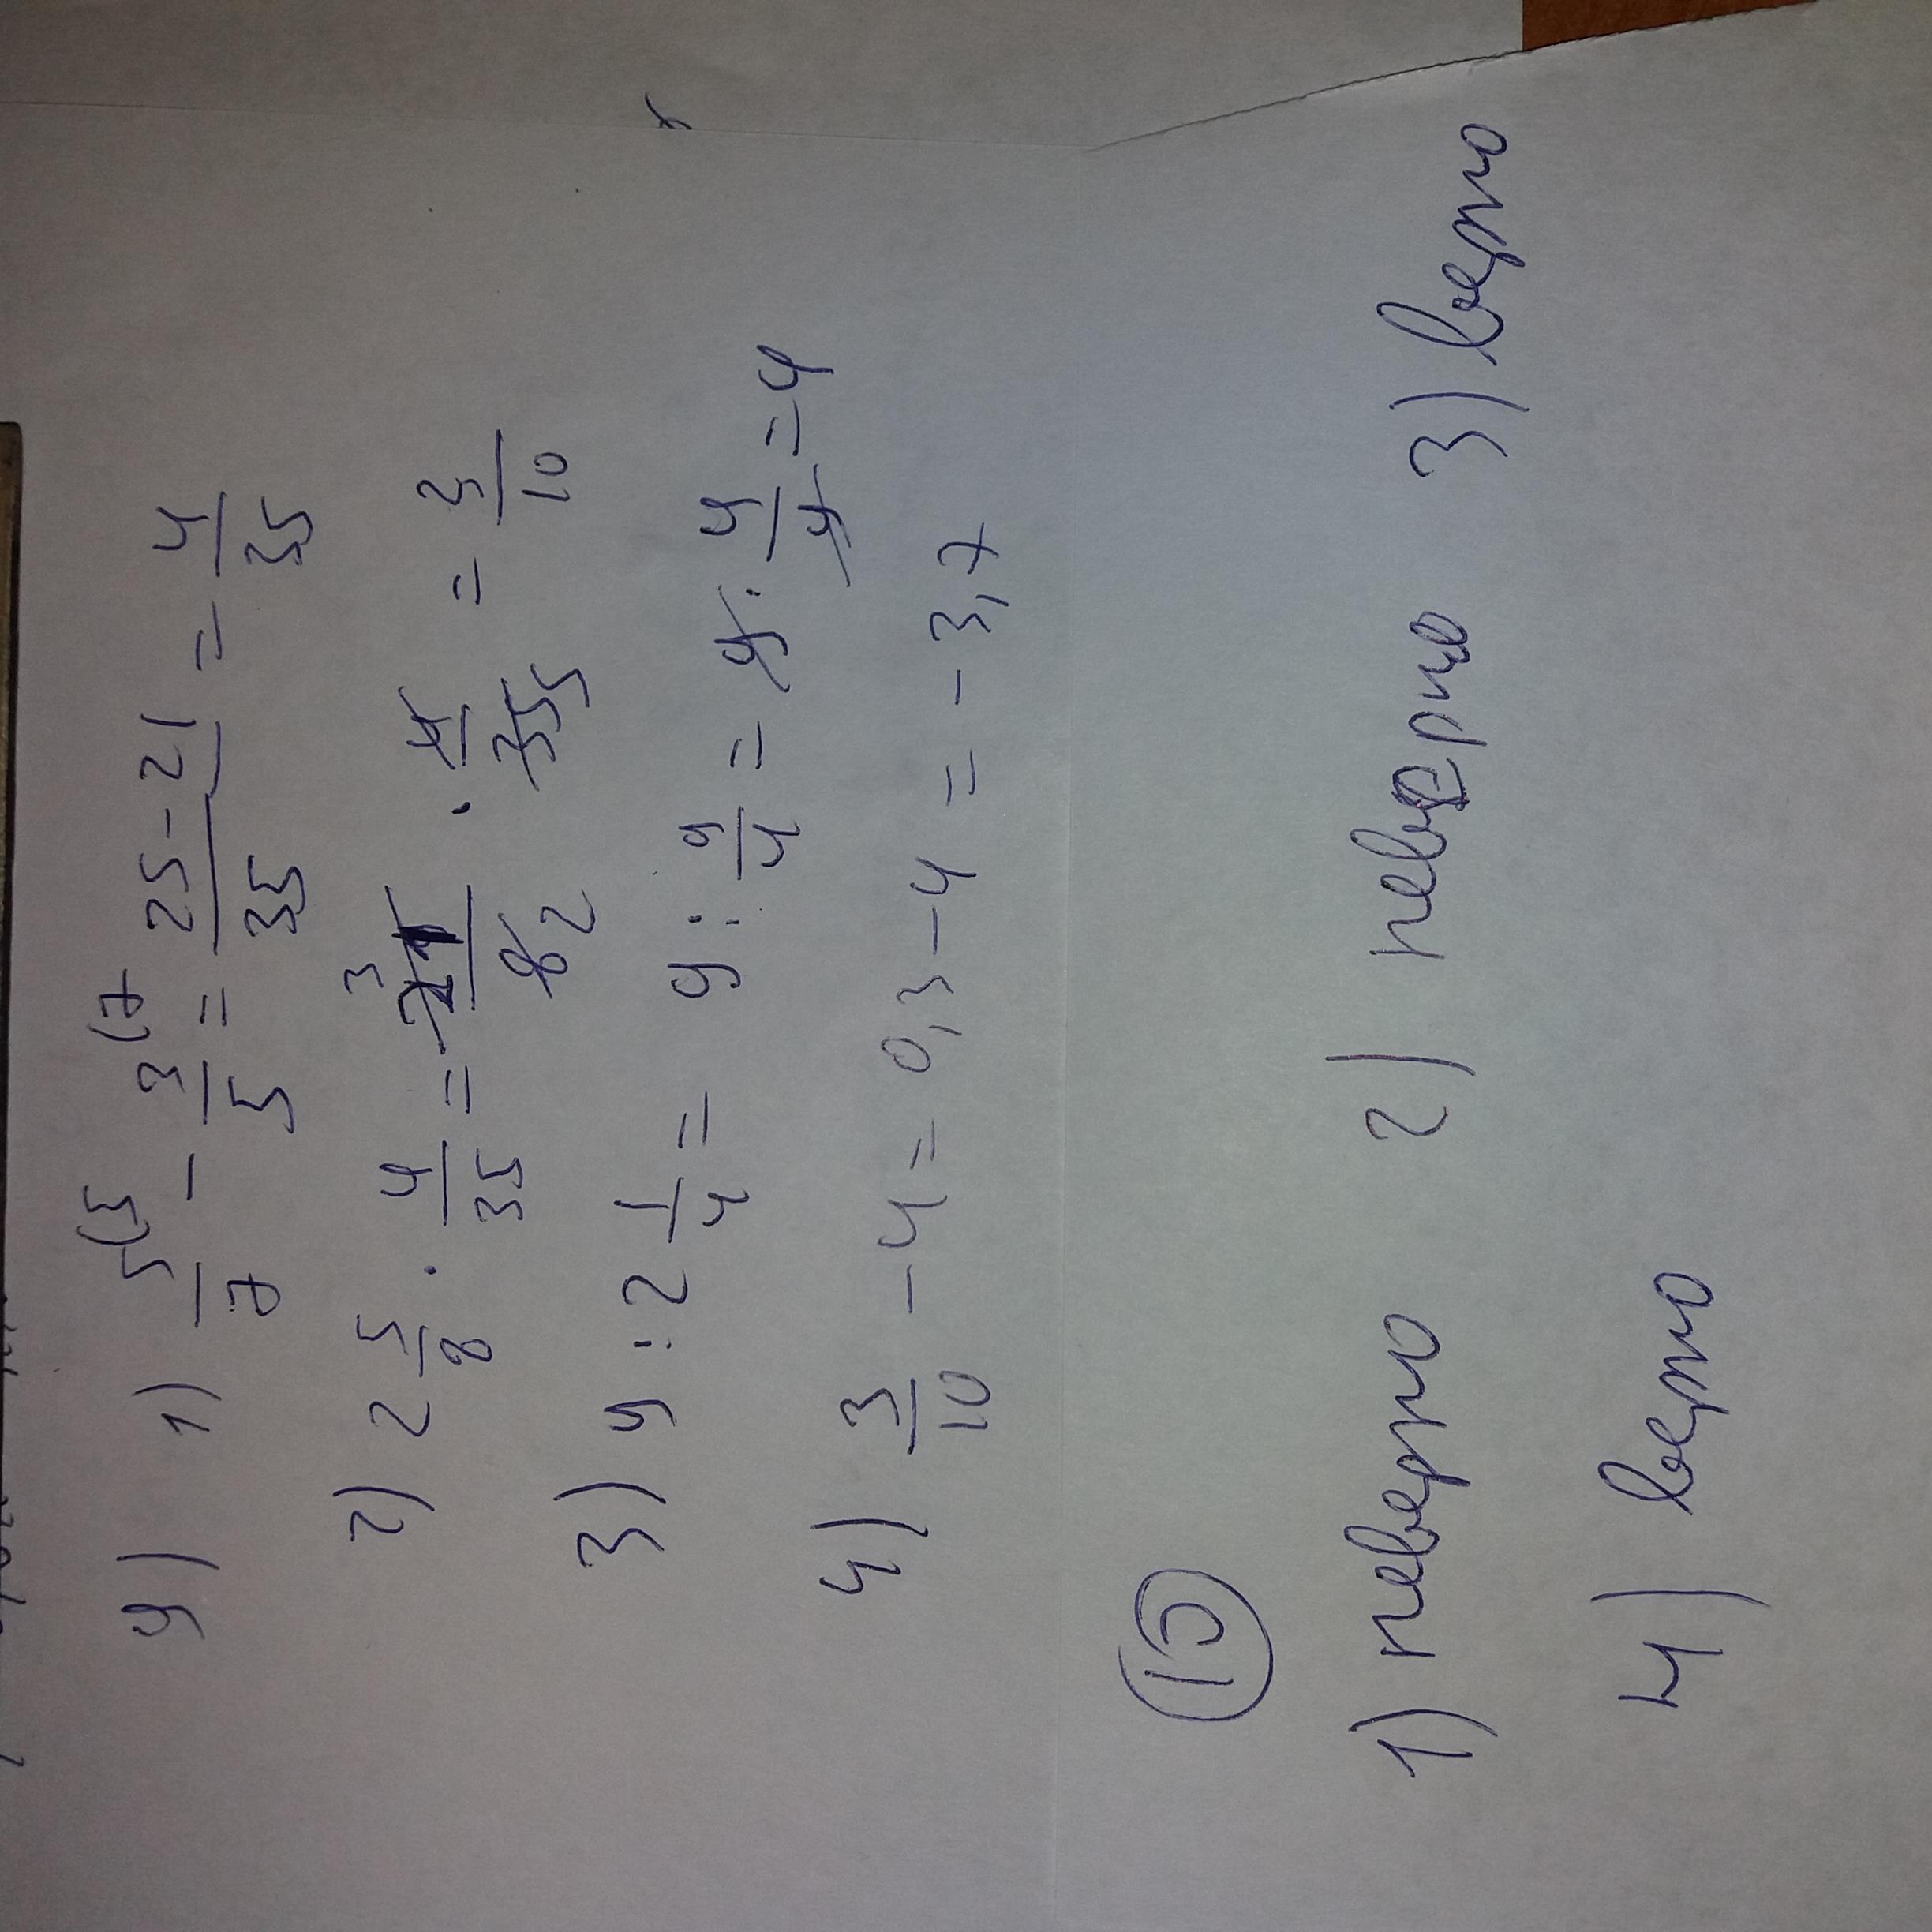 9) 1) 5/7 (5 - 3/5 (7 = 25-21/35 = 4/35
2) 2 5/8 · 4/35 = 21/8 3 2 · 4/35 5 = 3/10
3) 9 : 2 1/4 = 9 : 9/4 = 9 · 4/9 = 4
4) 3/10 - 4 = 0,3 - 4 = -3,7
10
1) неверно 2) неверно 3) верно
4) верно